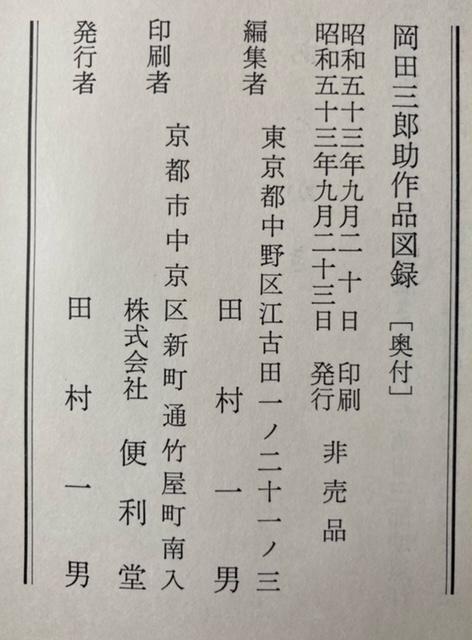 岡田三郎助作品図録 [奥付]
昭和五十三年九月二十日 印刷
昭和五十三年九月二十三日 発行
非売品
東京都中野区江古田一ノ二十一ノ三
編集者 田村一男
京都市中京区新町通竹屋町南入
印刷者 株式会社 便利堂
発行者 田村一男